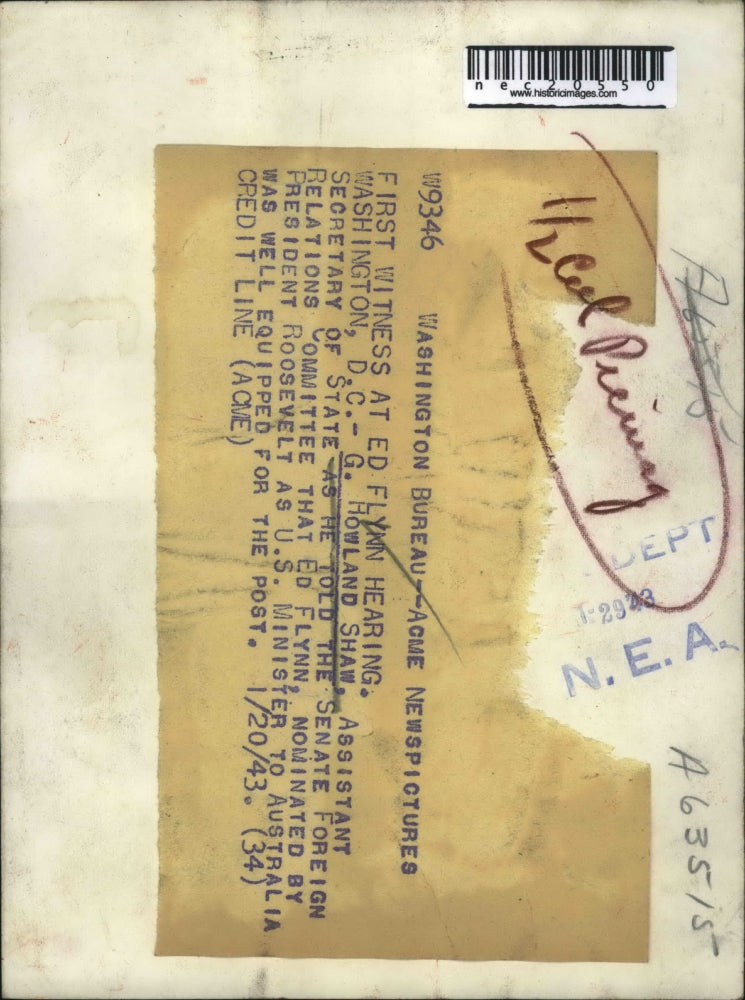 nec20550
www.historicimages.com
W9346 WASHINGTON BUREAU--ACME NEWSPICTURES
FIRST WITNESS AT ED FLYNN HEARING.
WASHINGTON, D.C.- G. HOWLAND SHAW, ASSISTANT
SECRETARY OF STATE AS HE TOLD THE SENATE FOREIGN
RELATIONS COMMITTEE THAT ED FLYNN, NOMINATED BY
PRESIDENT ROOSEVELT AS U.S. MINISTER TO AUSTRALIA
WAS WELL EQUIPPED FOR THE POST. 1/20/43. (34)
CREDIT LINE (ACME)
1/2 Col
DEPT.
N.E.A.
A63515